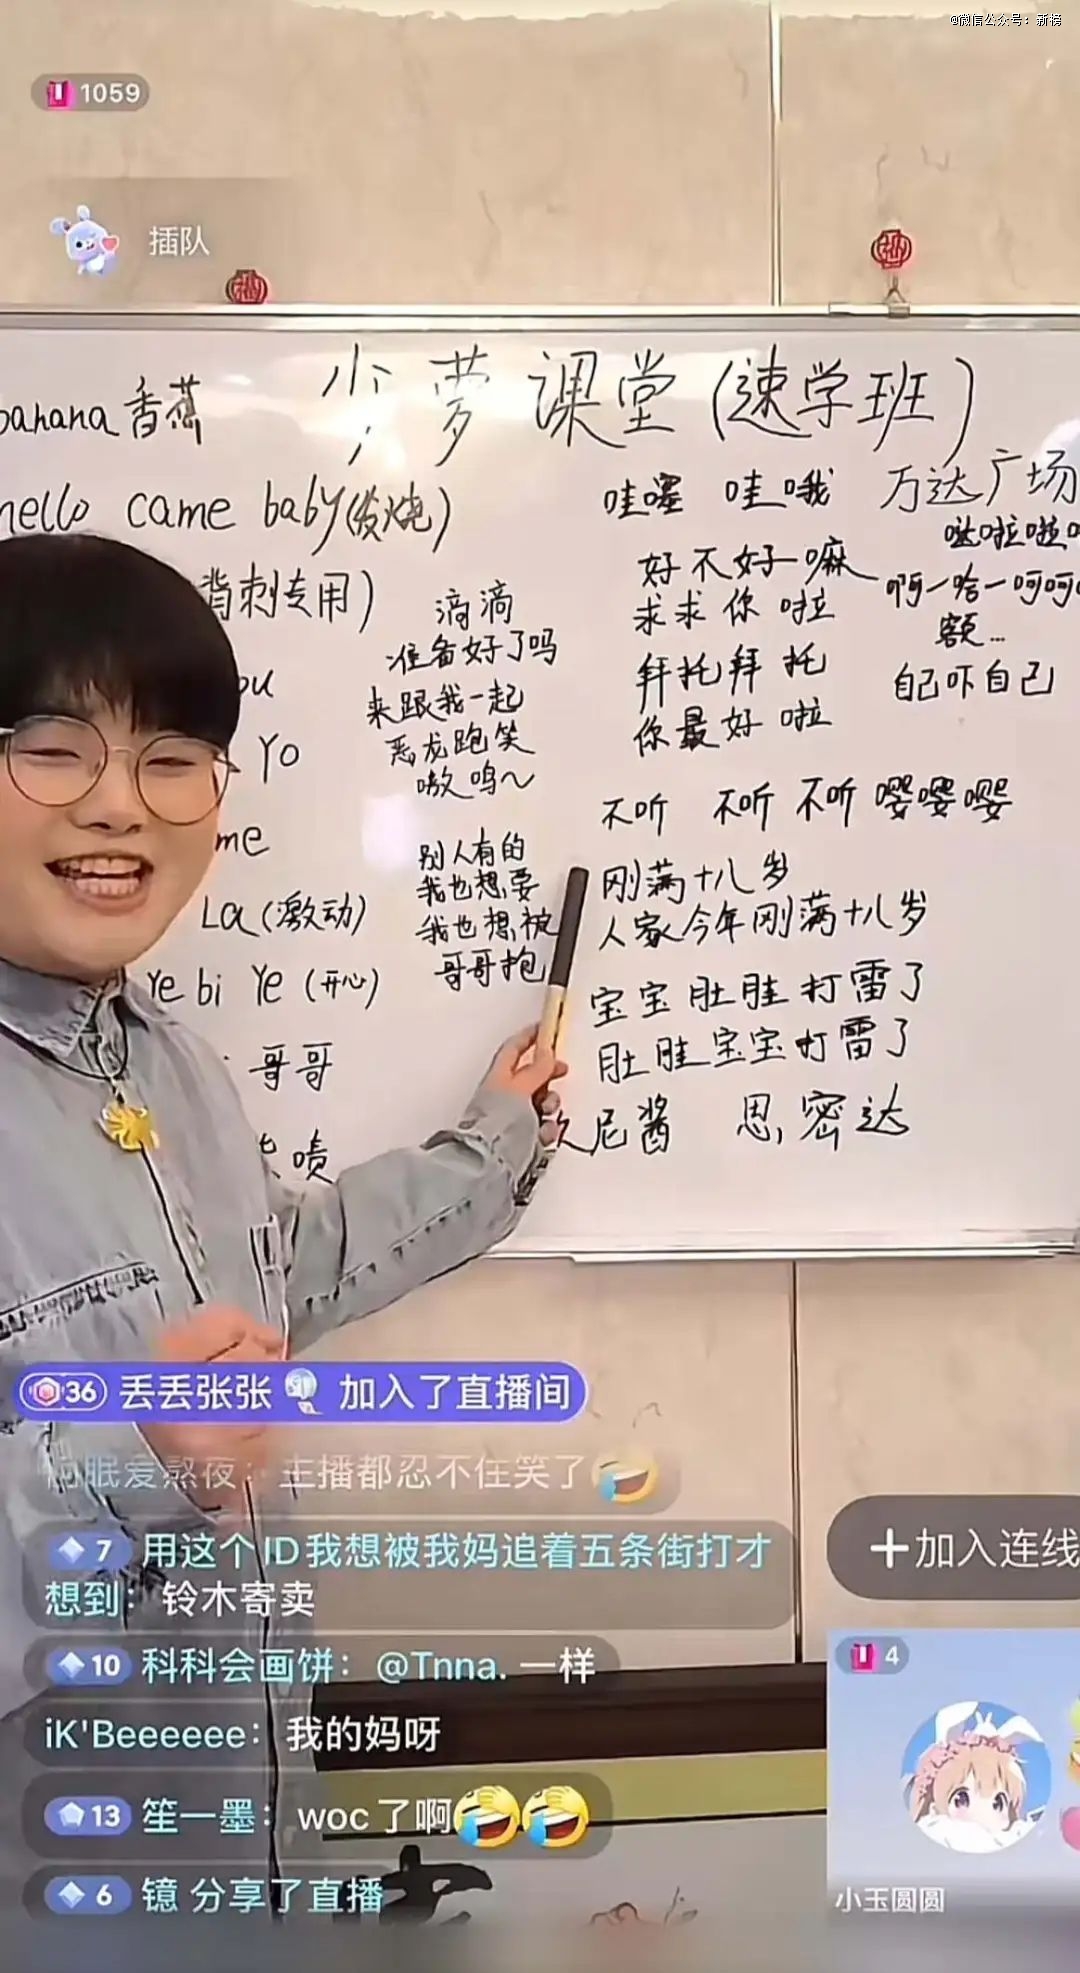 @微信公众号：新榜
1059
插队
少萝课堂(速学班)
banana香蕉
hello came baby(发烧)
背刺专用)
ou
Yo
me
La(激动)
Ye bi Ye (开心)
哥哥
啧
滴滴
准备好了吗
来跟我一起
恶龙跑笑
嗷呜~
别人有的
我也想要
我也想被
哥哥抱
哇噻 哇哦
好不好嘛
求求你啦
拜托拜托
你最好啦
万达广场
哒啦啦
啊一哈一呵呵
额...
自己吓自己
不听 不听 不听 嘤嘤嘤
刚满十八岁
人家今年刚满十八岁
宝宝肚肚打雷了
肚肚宝宝打雷了
尼酱 思密达
36 丢丢张张 加入了直播间
眠爱熬夜：主播都忍不住笑了🤣
7 用这个ID我想被我妈追着五条街打才
想到：铃木寄卖
10 科科会画饼：@Tnna. 一样
iK'Beeeeee：我的妈呀
13 笙一墨：woc了啊🤣🤣
6 镱 分享了直播
+加入连线
4
小玉圆圆